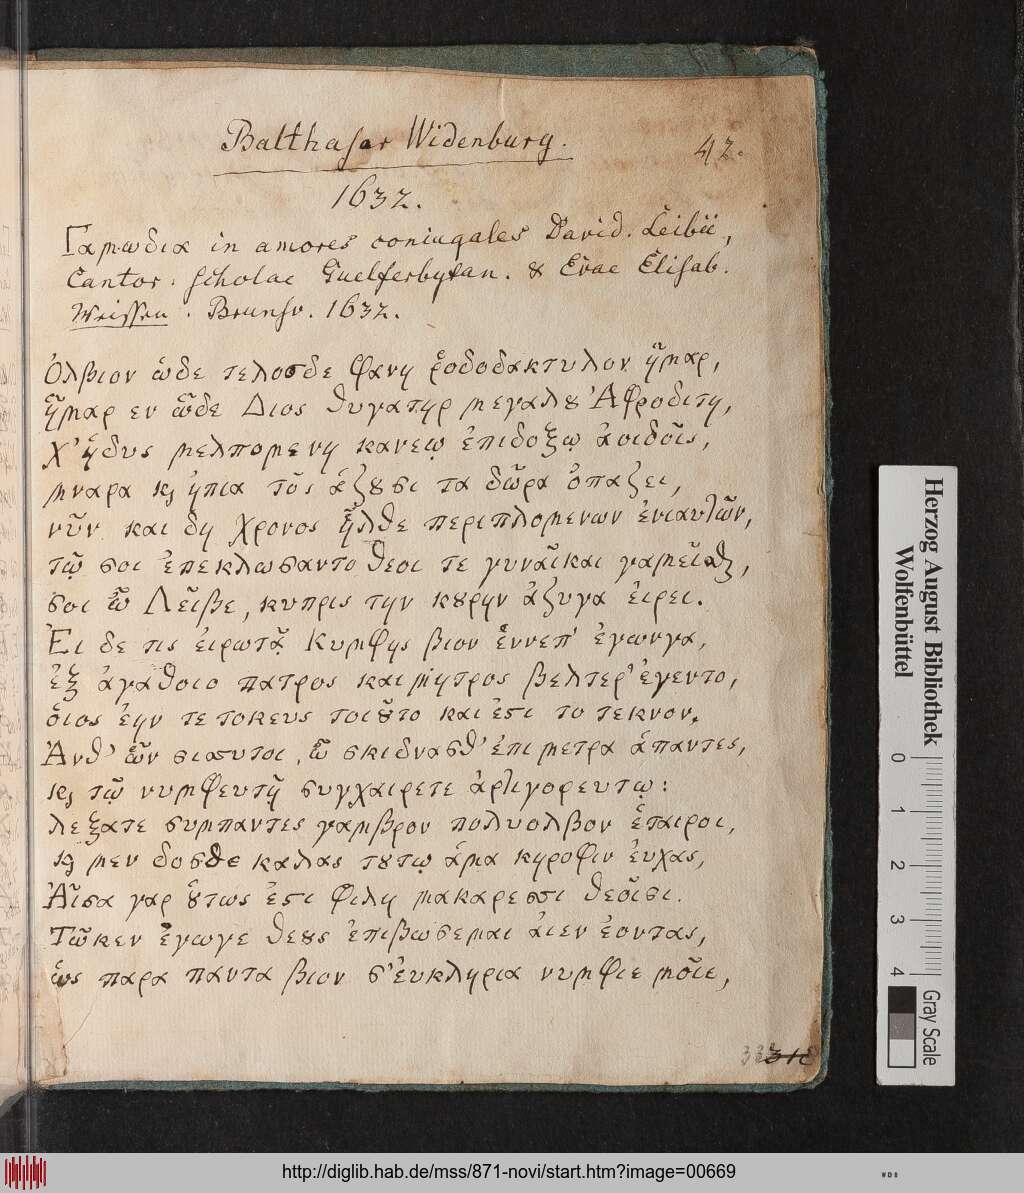 Balthasar Widenburg.
42.
1632.
Γαμωδια in amores coniugales David. Leibii,
Cantor. scholae Guelferbytan. & Evae Elisab.
Weissen. Brunsv. 1632.
Ὀλβιον ὧδε τελοσδε φανη ῥοδοδακτυλον ἦμαρ,
ἦμαρ εν ᾧδε Διος θυγατηρ μεγαλȣ Ἀφροδιτη,
χ' ἡδυς μελπομενη κανεῳ ἐπιδοξῳ ἀοιδοῖς,
μναρα ϗ ἠπια τοῖς ἀζȣσι τα δῶρα ὀπαζει,
νῦν και δη χρονος ἦλθε περιπλομενων ἐνιαυτῶν,
τῷ σοι ἐπεκλωσαντο θεοι τε γυναῖκαι γαμεῖσθαι,
σοι ὦ Λεῖβε, κυπρις την κȣρην ἀζυγα ἐιρει.
Ἐι δε τις ἐιρωτᾷ Κυμφης βιον ἐννεπ' ἐγωνγα,
ἐξ ἀγαθοιο πατρος και μητρος βελτερ' ἐγεντο,
ὁιος ἐην τε τοκευς τοιȣτο και ἐϛι το τεκνον.
Ἀνθ' ὧν σιασυτοι, ὦ σκιδνασθ' ἐπι μετρα ἁπαντες,
ϗ τῷ νυμφευτῇ συγχαιρετε ἀρτιγορευτῳ:
λεξατε συμπαντες γαμβρον πολυολβον ἑταιροι,
ϗ μεν δοσθε καλας τȣτῳ ἁμα κηροφιν ἐυχας,
Ἀῖσα γαρ ȣτως ἐϛι φιλη μακαρεσσι θεοῖσι.
Τῶκεν ἐγωγε θεȣς ἐπιβωσεμαι ἀιεν ἐοντας,
ὡς παρα παντα βιον σ' ἐυκληρια νυμφιε μοῖε,
Herzog August Bibliothek
Wolfenbüttel
0 1 2 3 4
Gray Scale
http://diglib.hab.de/mss/871-novi/start.htm?image=00669
WDB